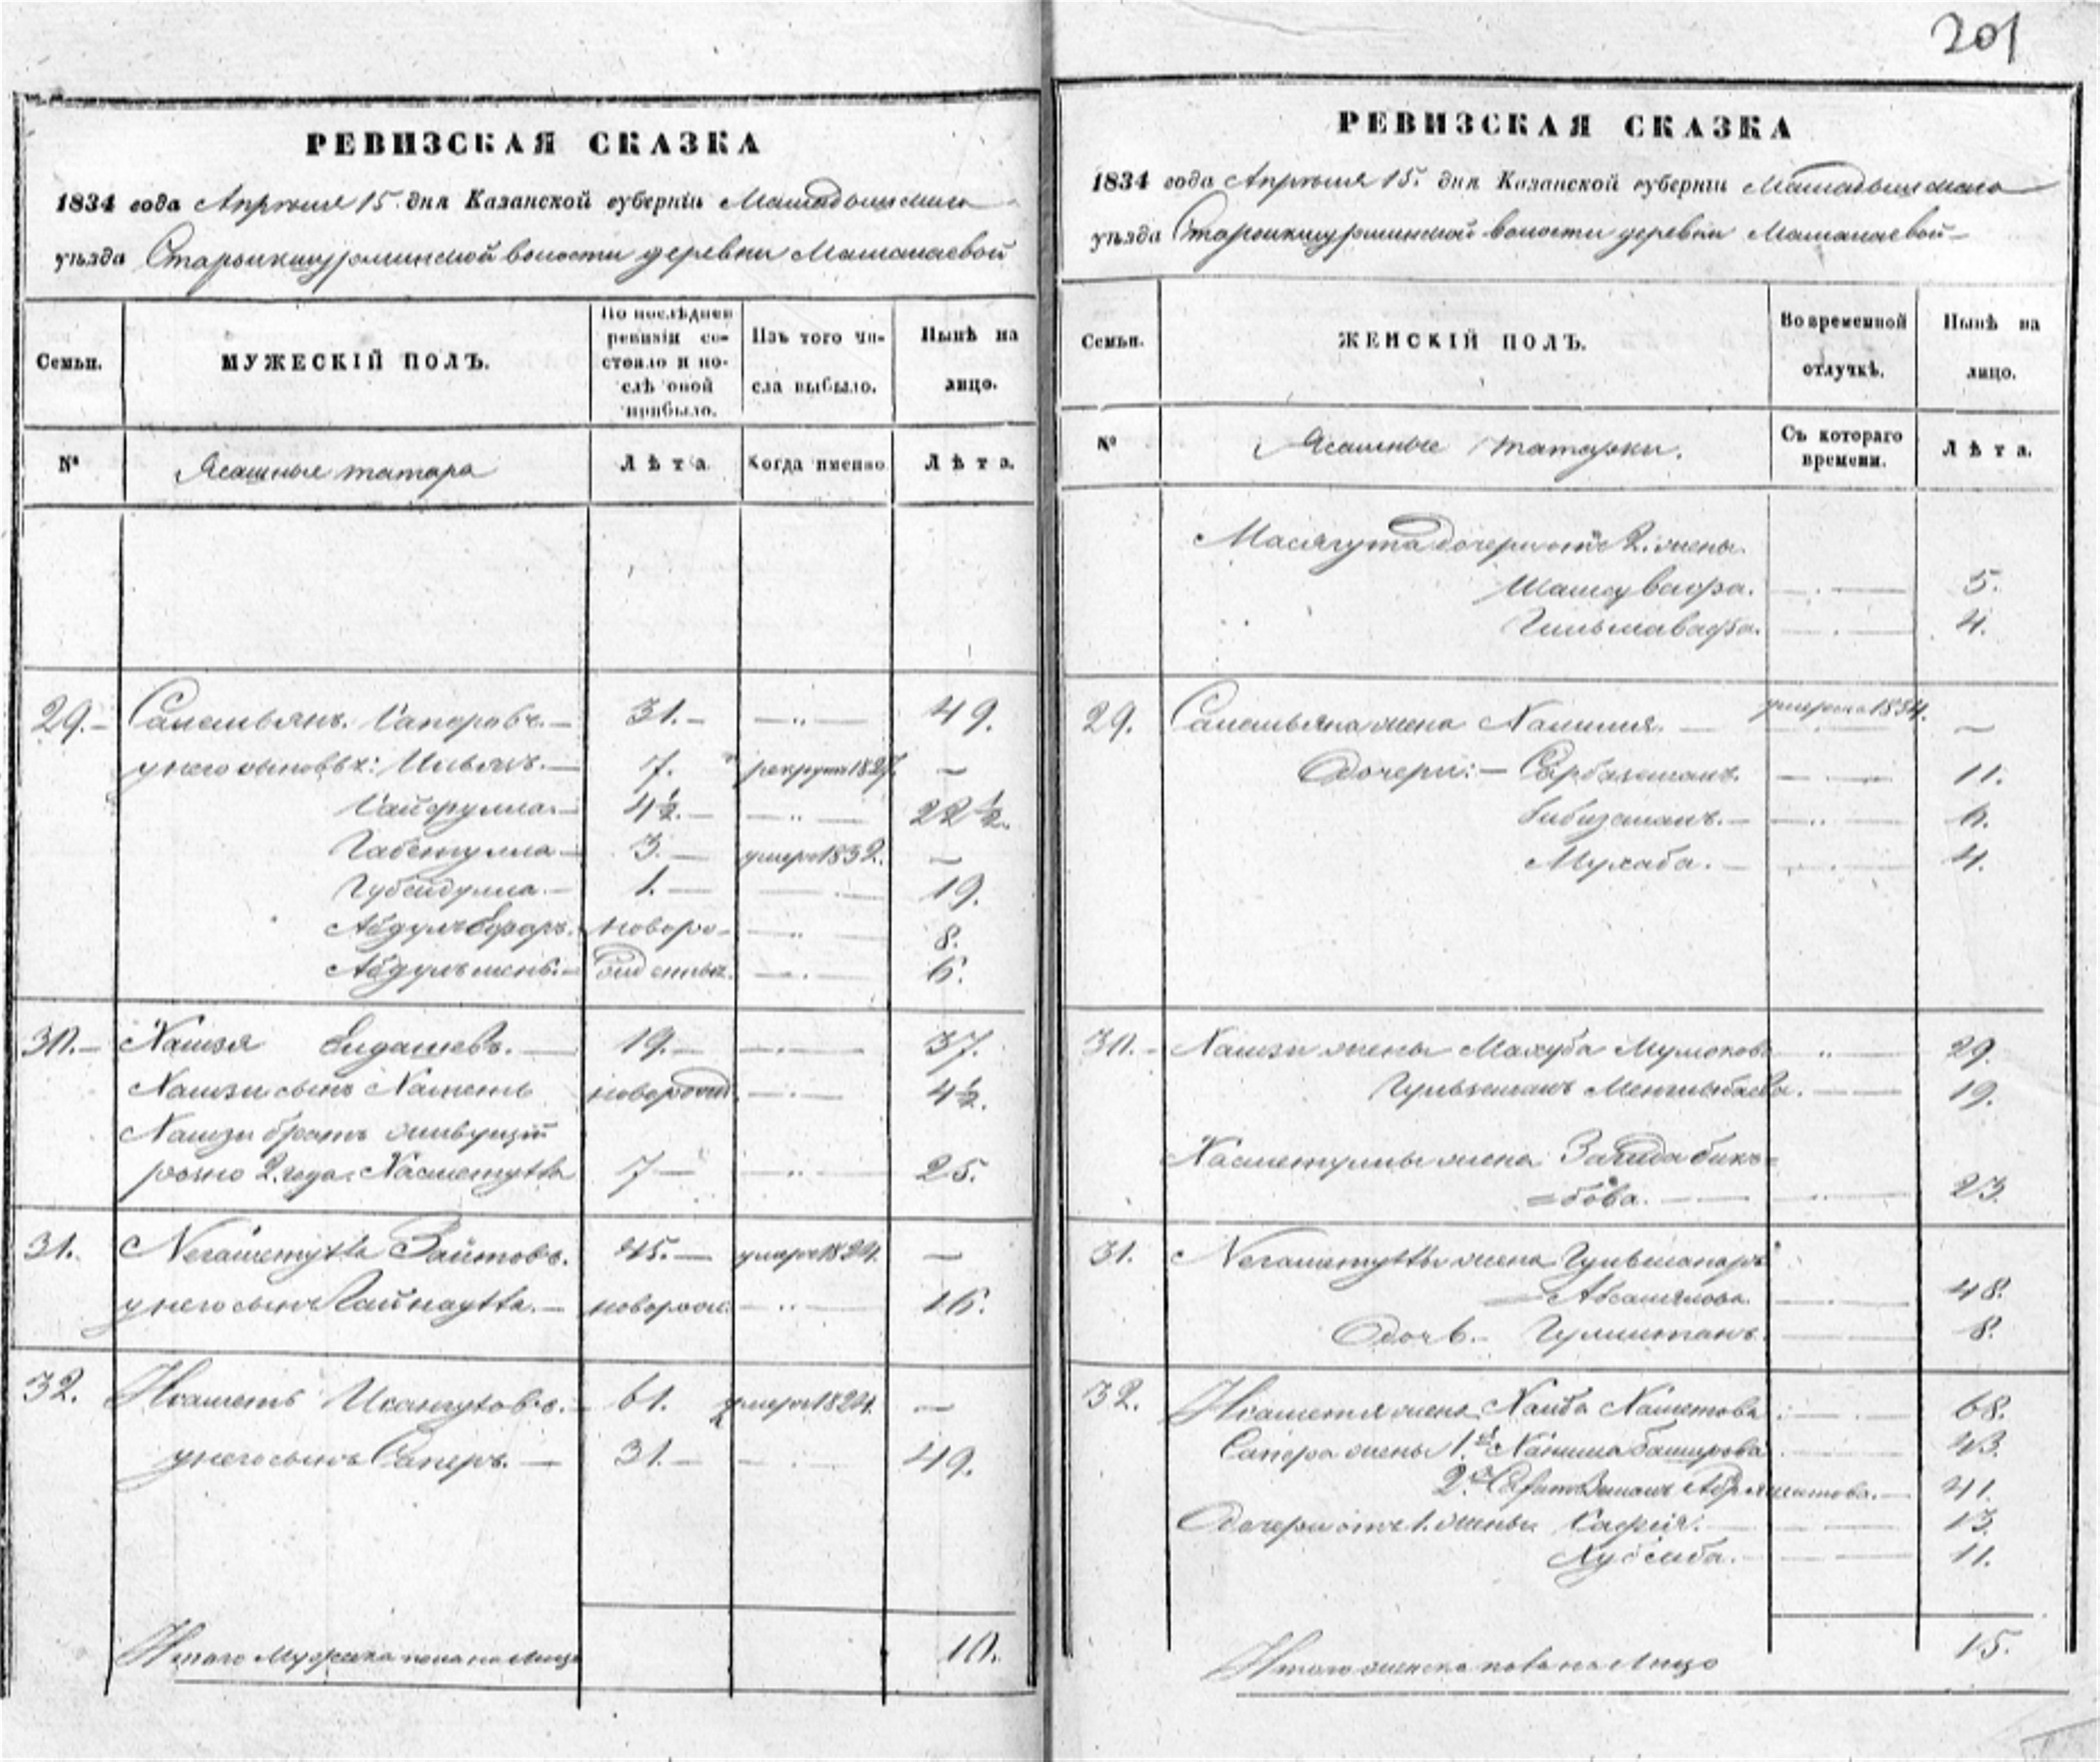 201
РЕВИЗСКАЯ СКАЗКА
1834 года Апреля 15. дня Казанской губерніи Мамадышскаго
уѣзда Староикшурминской волости деревни Мамалаевой
Семьи.
МУЖЕСКІЙ ПОЛЪ.
По послѣдней ревизіи состояло и послѣ оной прибыло.
Изъ того числа выбыло.
Нынѣ на лицо.
№
Ясашные татара
Лѣта
Когда именно
Лѣта.
29.— Салемьянъ Саперовъ.— 31.— —..— 49.
у него сыновья: Ильясъ.— 7. рекрутъ 1827. —
Сайфулла.— 4½.— —..— 22½.
Габетулла— 3.— умеръ 1832. —
Губейдулла.— 1.— — 19.
Абдулъ новоро- —..— 8.
Абдулъ жденны. —..— 6.
30.— Хамзя Елдашевъ.— 19.— —..— 37.
Хамзи сынъ Хаметь новорожд. —..— 4½.
Хамзи братъ живущій
розно 2. года. Хасметулла 7— —..— 25.
31. Негаметулла Заитовъ. 45.— умеръ 1824. —
у него сынъ Гайнаулла.— новорож. —..— 16.
32. Исаметь Исангуловъ.— 61. умеръ 1824. —
у него сынъ Саперъ.— 31.— —..— 49.
Итого Мужеска пола на Лицо 10.
РЕВИЗСКАЯ СКАЗКА
1834 года Апреля 15. дня Казанской губерніи Мамадышскаго
уѣзда Староикшурминской волости деревни Мамалаевой—
Семьи.
ЖЕНСКІЙ ПОЛЪ.
Во временной отлучкѣ.
Нынѣ на лицо.
№
Ясашные татарки.
Съ котораго времени.
Лѣта.
Масягута дочери отъ 2. жены.
Шамсувафа. —.— 5.
Гильмавафа. —.— 4.
29. Салемьяна жена Халимя.— умерла 1834. —
Дочери:— Сарбязаманъ. —..— 11.
Бибизаманъ.— —..— 6.
Мухаба.— —..— 4.
30.— Хамзи жены Махуба Мулюкова —..— 29.
Гульзаманъ Менглибаева. — 19.
Хасметуллы жена Загида бикъ=
=бова.— —..— 23.
31. Негаметуллы жена Гульжапаръ
Абсалямова. —..— 48.
Дочь.— Гулистанъ. — 8.
32. Исаметя жена Хаиба Хаметова. —..— 68.
Сапера жены 1.я Ханима Баширова 43.
2.я 41.
Дочери отъ 1. жены Сафія.— — 13.
Хубейба.— — 11.
Итого женска пола на Лицо 15.